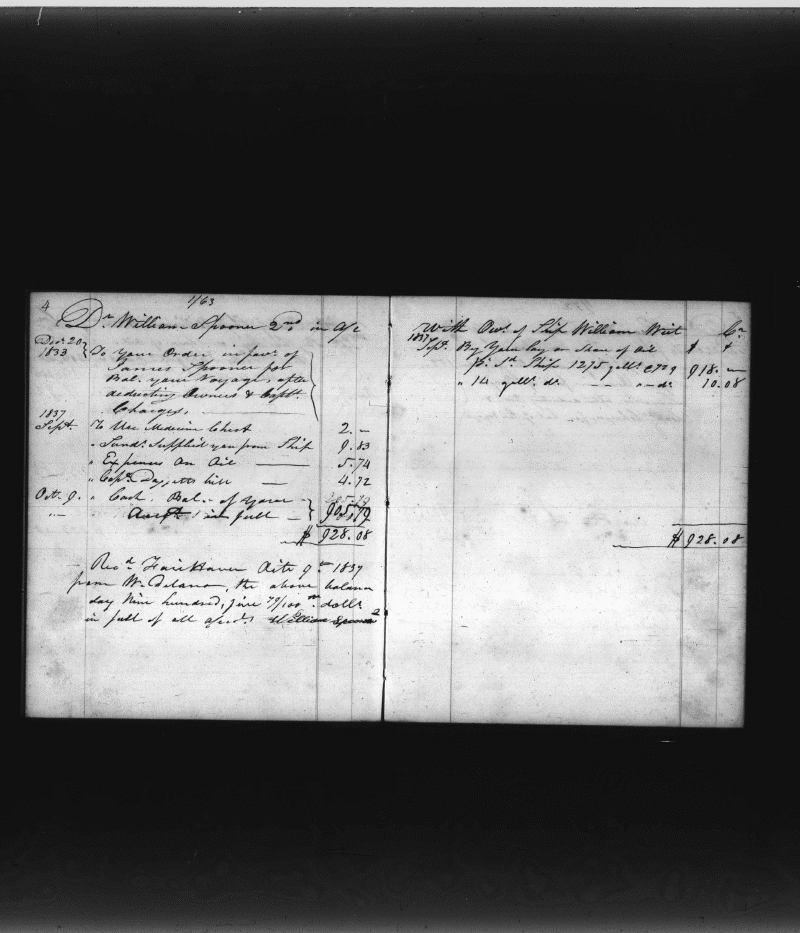 4
1/63
Dr William Spooner 2nd in a/c
Decr 20
1833 To Your Order in favr of
James Spooner for
Bal. your Voyage, after
deducting Owners & Captn
Charges,
1837
Septr To Use Medicine Chest 2.-
" Sunds Supplied you from Ship 9.83
" Expenses On Oil 5.74
" Captn bill 4.72
Octr 9. " Cash. Bal. of Your
in full 905.79
$ 928.08
Recd Fairhaven Octr 9th 1837
from W. Delano, the above balance
say Nine hundred, five 79/100 dolls
in full of all William Spooner 2
With Ows of Ship William Cr
1837
Septr By Your Lay or Share of Oil $
pr. Sd Ship 1275 galls @ 72 918.-
" 14 galls do " do 10.08
$ 928.08